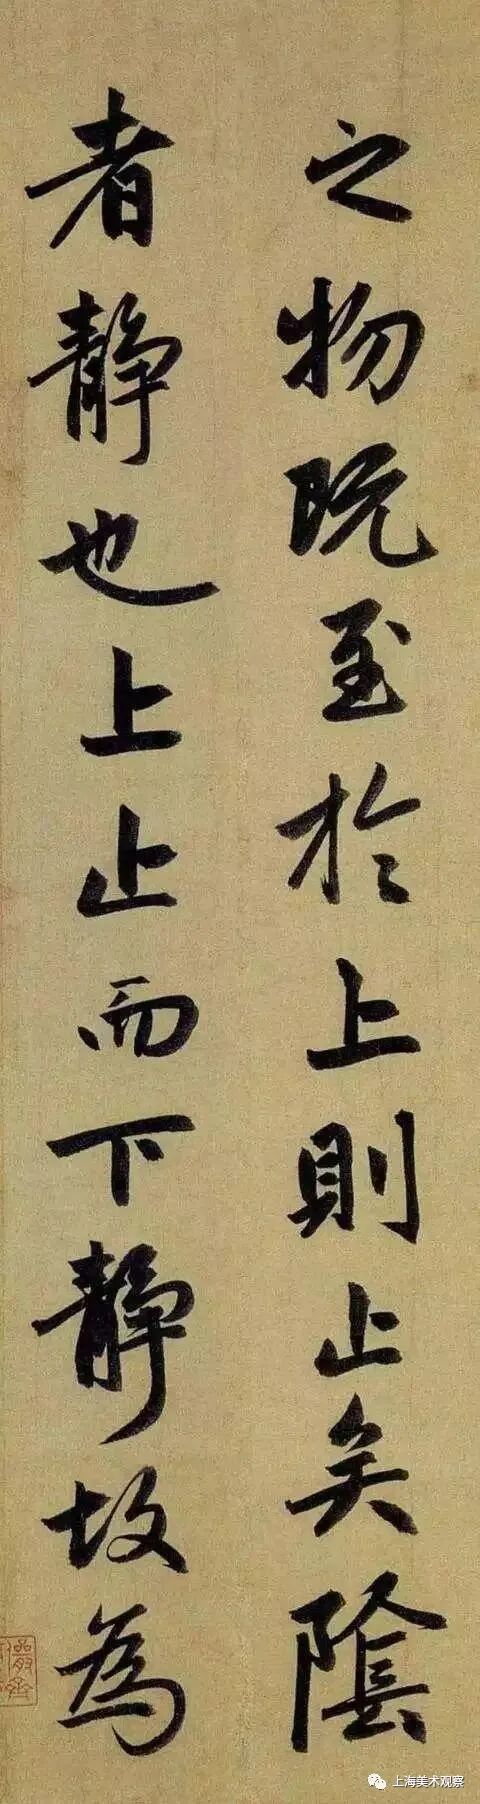 之物既至於上則止矣陰
者靜也上止而下靜故為
上海美术观察